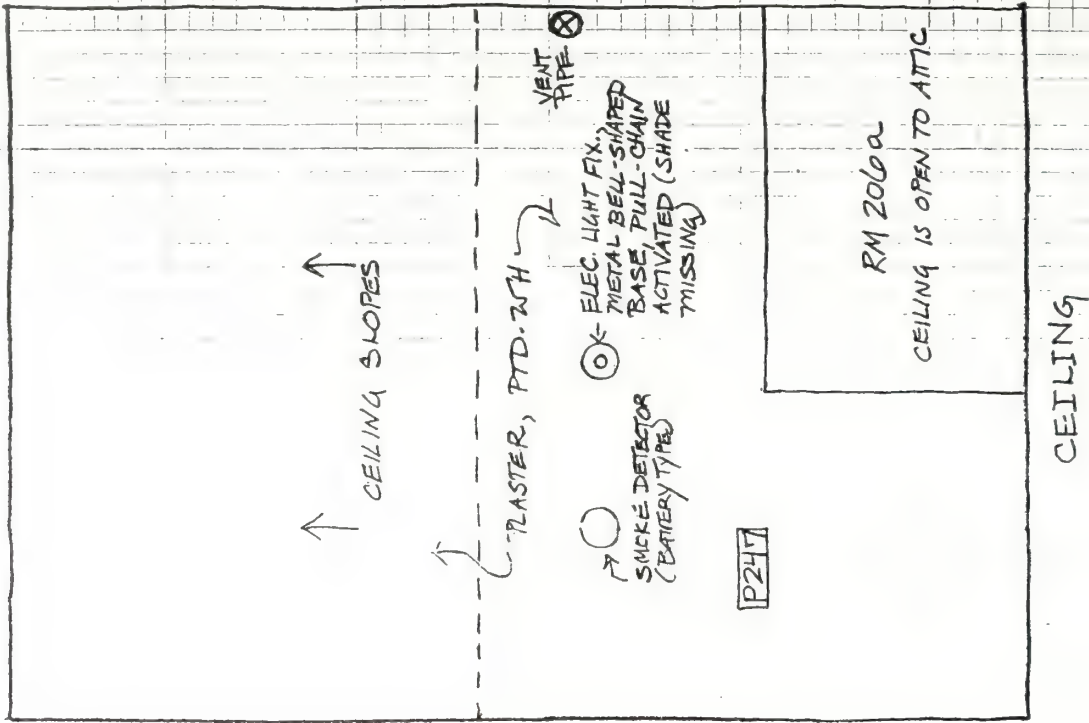 CEILING SLOPES
PLASTER, PTD. WH
VENT
PIPE
ELEC. LIGHT FIX.,
METAL BELL-SHAPED
BASE, PULL-CHAIN
ACTIVATED (SHADE
MISSING)
SMOKE DETECTOR
(BATTERY TYPE)
P247
RM 206a
CEILING IS OPEN TO ATTIC
CEILING